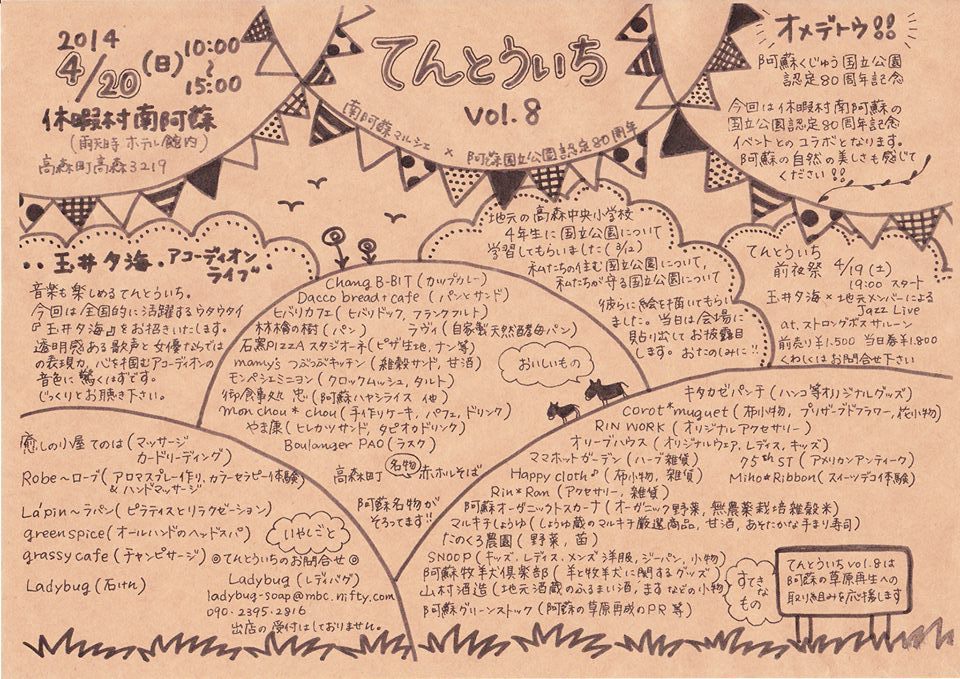 2014
4/20(日)10:00~15:00
休暇村南阿蘇
(雨天時 ホテル館内)
高森町高森3219
てんとういち
vol.8
南阿蘇マルシェ × 阿蘇国立公園認定80周年
オメデトウ!!
阿蘇くじゅう国立公園
認定80周年記念
今回は休暇村南阿蘇の
国立公園認定80周年記念
イベントとのコラボとなります。
阿蘇の自然の美しさも感じて
ください!!
地元の高森中央小学校
4年生に国立公園について
学習してもらいました(3/12)
私たちの住む国立公園について、
私たちが守る国立公園について
彼らに絵を描いてもらい
ました。当日は会場に
貼り出してお披露目
します。おたのしみに!!
てんとういち
前夜祭 4/19(土)
19:00 スタート
玉井夕海×地元メンバーによる
Jazz Live
at.ストロングボスサルーン
前売り¥1.500 当日券¥1.800
くわしくはお問合せ下さい
‥玉井夕海・アコーディオン
ライブ‥
音楽も楽しめるてんとういち。
今回は全国的に活躍するウタウタイ
『玉井夕海』をお招きいたします。
透明感ある歌声と女優ならでは
の表現力、心を掴むアコーディオンの
音色に驚くはずです。
じっくりとお聴き下さい。
Chang B-BIT(カップカレー)
Dacco bread+cafe(パンとサンド)
ヒバリカフェ(ヒバリドッグ、フランクフルト)
林檎の樹(パン) ラヴィ(自家製天然酵母パン)
石窯PIZZA スタジオーネ(ピザ生地、ナン等)
mamy's つぶつぶキッチン(雑穀サンド、甘酒)
モンペシェミニヨン(クロックムッシュ、タルト)
御食事処 忠(阿蘇ハヤシライス 他)
mon chou*chou(手作りケーキ、パフェ、ドリンク)
やま康(ヒレカツサンド、タピオカドリンク)
Boulanger PAO(ラスク)
おいしいもの
高森町 名物 赤ホルそば
阿蘇名物が
そろってます!!
癒しの小屋 てのは(マッサージ
カードリーディング)
Robe~ローブ(アロマスプレー作り、カラーセラピー体験
&ハンドマッサージ)
La'pin~ラパン(ピラティスとリラクゼーション)
green spice(オールハンドのヘッドスパ)
grassy cafe(チャンピサージ)
Ladybug(石けん)
いやしごと
◎てんとういちのお問合せ◎
Ladybug(レディバグ)
ladybug-soap@mbc.nifty.com
090-2395-2816
出店の受付はしておりません。
キタカゼパンチ(ハンコ等オリジナルグッズ)
corot*muguet(布小物、プリザーブドフラワー、花小物)
RIN WORK(オリジナルアクセサリー)
オリーブハウス(オリジナルウェア、レディス、キッズ)
ママホットガーデン(ハーブ雑貨) 75th ST(アメリカンアンティーク)
Happy cloth♪(布小物、雑貨) Miho*Ribbon(スイーツデコ体験)
Rin*Ran(アクセサリー、雑貨)
阿蘇オーガニックトスカーナ(オーガニック野菜、無農薬栽培雑穀米)
マルキチしょうゆ(しょうゆ蔵のマルキチ厳選商品、甘酒、あそたかな手まり寿司)
たのくろ農園(野菜、苗)
SNOOP(キッズ、レディス、メンズ洋服、ジーパン、小物)
阿蘇牧羊犬倶楽部(羊と牧羊犬に関するグッズ)
山村酒造(地元酒蔵のふるまい酒、まるなどの小物)
阿蘇グリーンストック(阿蘇の草原再成のPR等)
すてきなもの
てんとういちvol.8は
阿蘇の草原再生への
取り組みを応援します